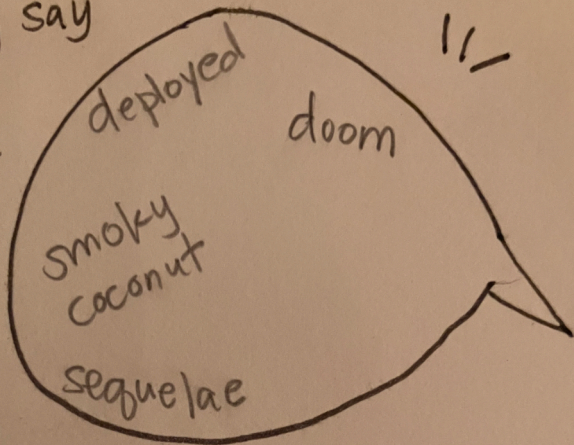 say
deployed
doom
smoky
coconut
sequelae